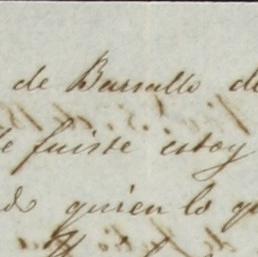 de Barsallo de
te fuiste estoy
do quien lo qu